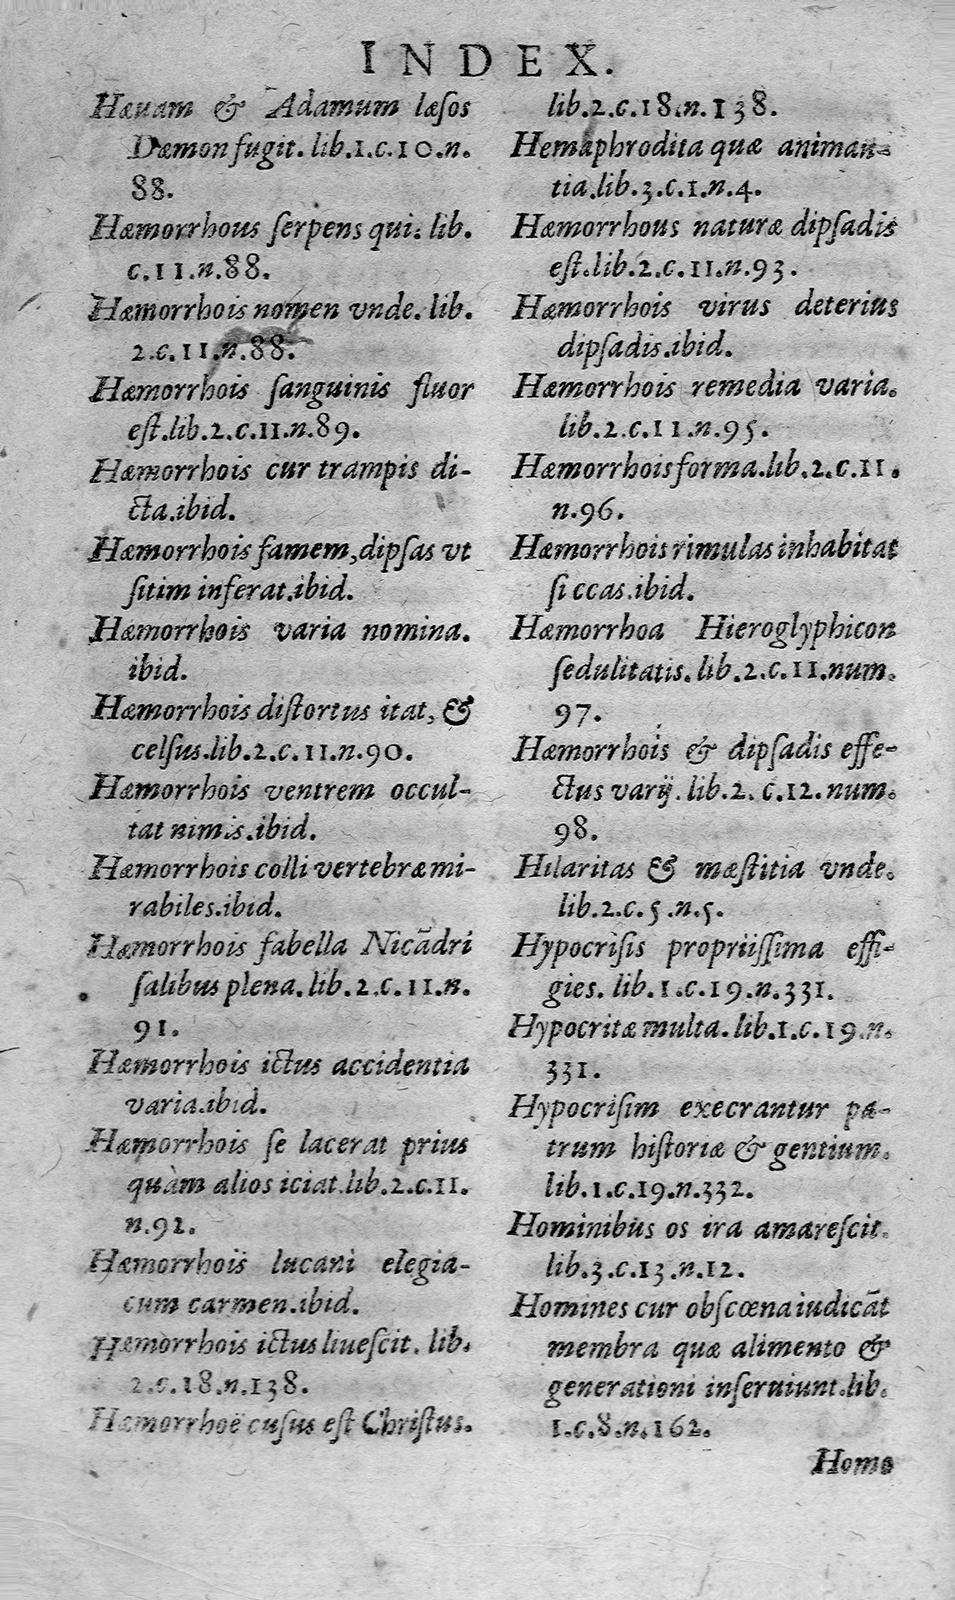 INDEX.
Hæuam & Adamum læsos
Dæmon fugit. lib.1.c.10.n.
88.
Hæmorrhous serpens qui. lib.
c.11.n.88.
Hæmorrhois nomen vnde. lib.
2.c.11.n.88.
Hæmorrhois sanguinis fluor
est.lib.2.c.11.n.89.
Hæmorrhois cur trampis di-
cta.ibid.
Hæmorrhois famem,dipsas vt
sitim inferat.ibid.
Hæmorrhois varia nomina.
ibid.
Hæmorrhois distortus itat, &
celsus.lib.2.c.11.n.90.
Hæmorrhois ventrem occul-
tat nimis.ibid.
Hæmorrhois colli vertebræ mi-
rabiles.ibid.
Hæmorrhois fabella Nicãdri
salibus plena. lib.2.c.11.n.
91.
Hæmorrhois ictus accidentia
varia.ibid.
Hæmorrhois se lacerat prius
quàm alios iciat.lib.2.c.11.
n.92.
Hæmorrhois lucani elegia-
cum carmen.ibid.
Hæmorrhois ictus liuescit. lib.
2.c.18.n.138.
Hæmorrhoë cusus est Christus.
lib.2.c.18.n.138.
Hemaphrodita quæ animan-
tia.lib.3.c.1.n.4.
Hæmorrhous naturæ dipsadis
est.lib.2.c.11.n.93.
Hæmorrhois virus deterius
dipsadis.ibid.
Hæmorrhois remedia varia.
lib.2.c.11.n.95.
Hæmorrhois forma.lib.2.c.11.
n.96.
Hæmorrhois rimulas inhabitat
siccas.ibid.
Hæmorrhoa Hieroglyphicon
sedulitatis. lib.2.c.11.num.
97.
Hæmorrhois & dipsadis effe-
ctus varij. lib.2. c.12. num.
98.
Hilaritas & mæstitia vnde.
lib.2.c.5.n.5.
Hypocrisis propriissima effi-
gies. lib.1.c.19.n.331.
Hypocritæ multa. lib.1.c.19.n.
331.
Hypocrisim execrantur pa-
trum historiæ & gentium.
lib.1.c.19.n.332.
Hominibus os ira amarescit.
lib.3.c.13.n.12.
Homines cur obscœna iudicãt
membra quæ alimento &
generationi inseruiunt.lib.
1.c.8.n.162.
Homo